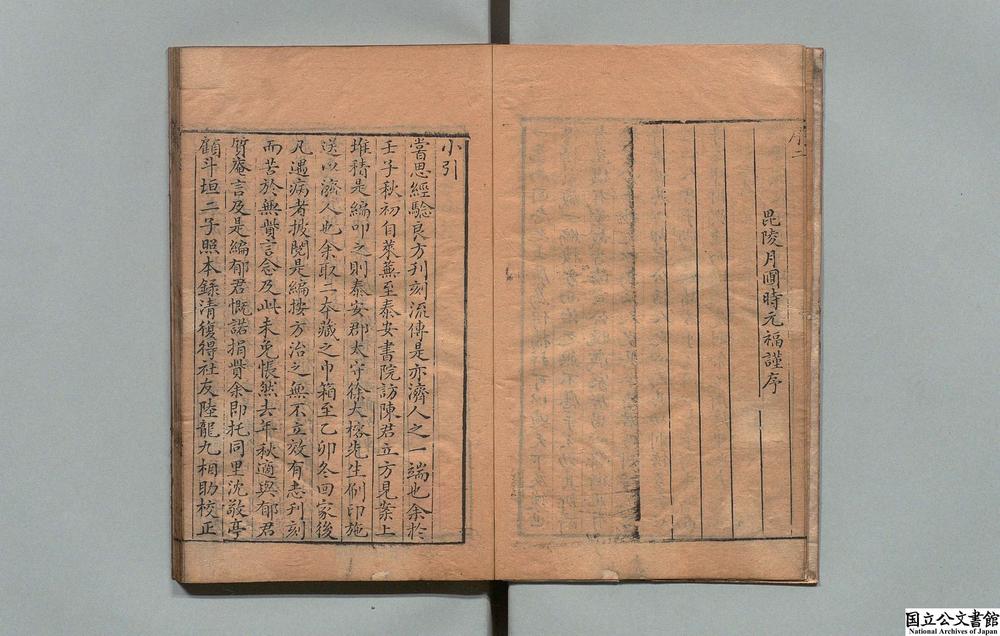 序二
毘陵月圃時元福謹序
小引
嘗思經驗良方刊刻流傳是亦濟人之一端也余於
壬子秋初自萊蕪至泰安書院訪陳君立方見案上
堆積是編叩之則泰安郡太守徐大榕先生刷印施
送以濟人也余取二本藏之巾箱至乙卯冬回家後
凡遇病者披閱是編按方治之無不立效有志刊刻
而苦於無貲言念及此未免悵然去年秋適與郁君
質庵言及是編郁君慨諾捐貲余即托同里沈敬亭
顧斗垣二子照本錄清復得社友陸龍九相助校正
国立公文書館
National Archives of Japan